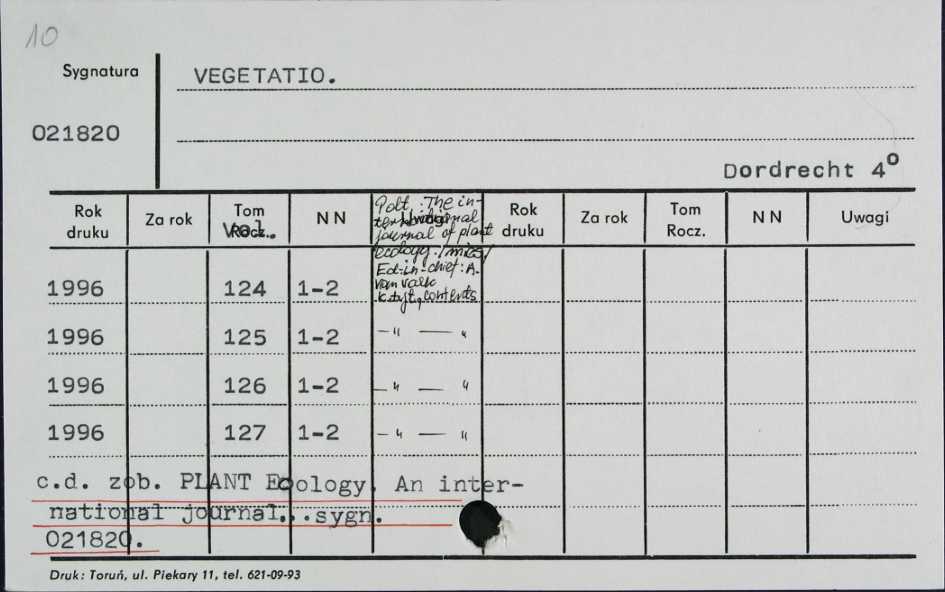 10
Sygnatura
VEGETATIO.
021820
Dordrecht 4º
Rok druku Za rok Tom Rocz. Vol. N N Uwagi Rok druku Za rok Tom Rocz. N N Uwagi
The in-
ternational
journal of plant
ecology.
Ed-in-chief: A.
van
k.tyt, contents
1996 124 1-2
1996 125 1-2 —〃— 〃
1996 126 1-2 —〃— 〃
1996 127 1-2 —〃— 〃
c.d. zob. PLANT Ecology. An inter-
national journal...sygn.
021820.
Druk: Toruń, ul. Piekary 11, tel. 621-09-93